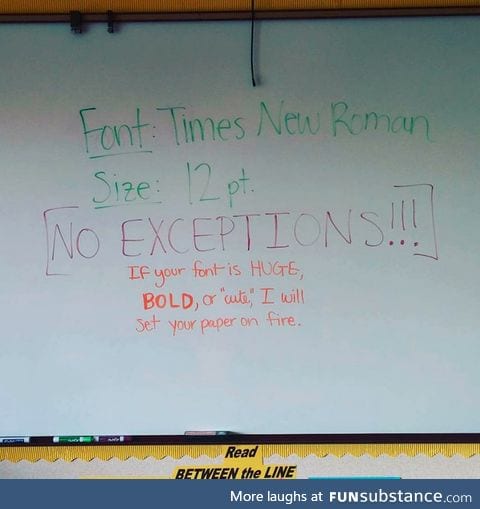 Font: Times New Roman
Size: 12 pt.
[NO EXCEPTIONS!!!]
If your font is HUGE,
BOLD, or "cute," I will
set your paper on fire.
Read
BETWEEN the LINE
More laughs at FUNsubstance.com